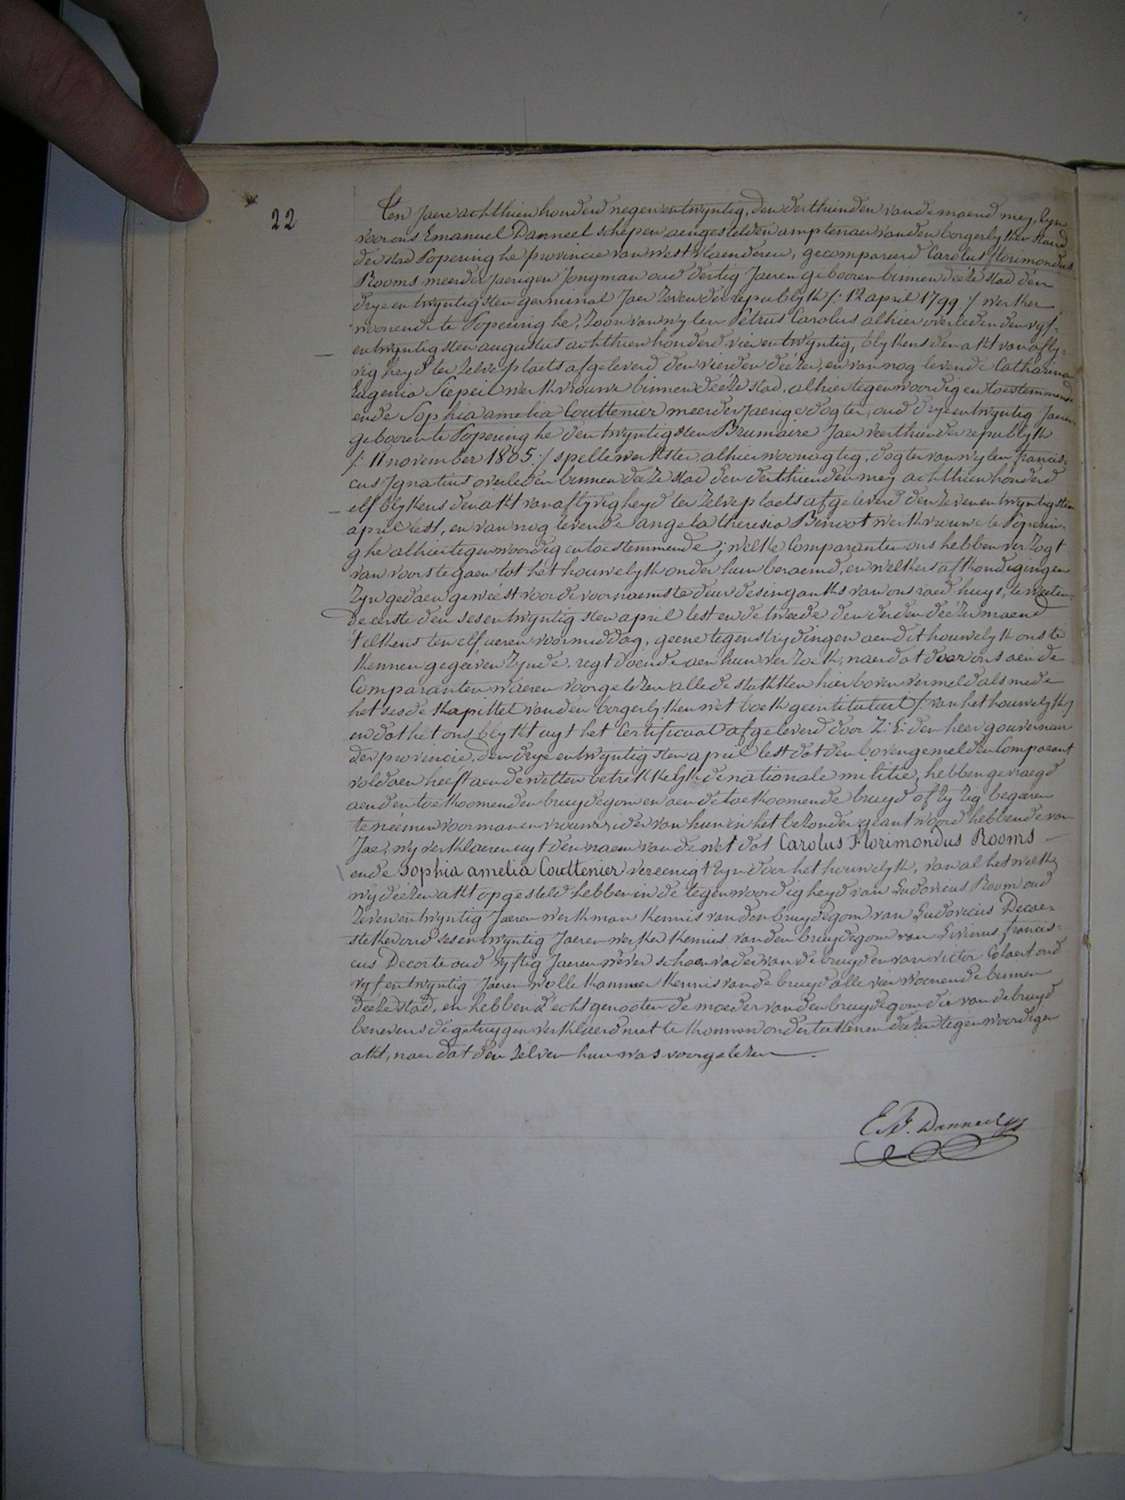 22
Ten Jaere achthien honderd negen en twyntig, den derthienden van de maend mey, Zyn
voor ons Emanuel Danneel schepen aengestelden amptenaer van den borgerlyken stand
der stad Poperinghe provincie van west vlaenderen, gecompareerd Carolus Florimondus
Rooms meerder jaerigen Jongman oud dertig Jaeren gebooren binnen deeze stad den
drye en twyntigsten germinal Jaer zeven der republyk /: 12 april 1799 :/ werker
woonende te Poperinghe, Zoon van wylen Petrus Carolus alhier overleden den vyf-
en twyntigsten augustus achthien honderd vier en twyntig, blykens den akt van afly-
vigheyd ter zelve plaets afgeleverd den vierden deézer, en van nog levende Catharina
Eugenia Siepeil werkvrouwe binnen deéze stad, alhier tegenwoordig en toestemmende
ende Sophia amelia Couttenier meerder Jaerige dogter, oud drye en twyntig Jaeren
gebooren te Poperinghe den twyntigsten Brumaire Jaer veerthien der republyk
/: 11 november 1805 :/ spellewerkster alhier woonagtig, dogter van wylen francis-
cus Ignatius overleden binnen deéze stad den derthienden mey achthien honderd
elf blykens den akt van aflyvigheyd ter zelve plaets afgeleverd den zeven en twyntigsten
april lest, en van nog levende angela theresia Benoot werkvrouwe te Poperin-
ghe alhier tegenwoordig en toestemmende; welke Comparanten ons hebben verzogt
van voorstegaen tot het houwelyk onder hun beraemd, en welkers afkondigingen
zyn gedaen geweést voor de voornaemste deur des inganks van ons raedhuys, te weéten
de eerste den sesentwyntigsten april lest en de tweede den derden deézer maend
t'elkens ten elf ueren voormiddag, geene tegenstrydingen aen dit houwelyk ons te
kennen gegeéven zynde, regt doende aen hun verzoek, naer dat door ons aen de
Comparanten waeren voorgelezen alle de stukken hier boven vermeld als mede
het sesde kapittel van den borgerlyken wetboek geentituleert /: van het houwelyk :/
en dat het ons blykt uyt het Certificaat afgeleverd door Z: E: den heer gouverneur
der provincie, den drye en twyntigsten april lest dat den bovengemelden Comparant
voldaen heeft aen de wetten betrekkelyk de nationale militie, hebben gevraegd
aen den toekoomenden bruydegom en aen de toekoomende bruyd of zy zig begeéren
te neémen voor man en vrouw, ider van hun in het bezonder geantwoord hebbende van
Jae, wy verklaeren uyt den naem van de wet dat Carolus Florimondus Rooms
ende Sophia amelia Couttenier vereenigt zyn door het houwelyk, van al het welke
wy deézen akt opgesteld hebben in de tegenwoordigheyd van Ludovicus Room oud
zeven en twyntig Jaeren werkman kennis van den bruydegom van Ludovicus Decae-
stecker oud sesentwyntig Jaeren werker kennis van den bruydegom van Livinus francis-
cus Decorte oud vyftig Jaeren wever schoonvader van de bruyd en van victor Colaert oud
vyf en twyntig Jaeren wollekammer kennis van de bruyd alle vier woonende binnen
deéze stad, en hebben d'echtgenooten de moeder van den bruydegom die van de bruyd
benevens de getuygen verklaerd niet te konnen onderteekenen deézen tegenwoordigen
akt, naer dat den zelven hun was voorgelezen.
E. F. Danneel